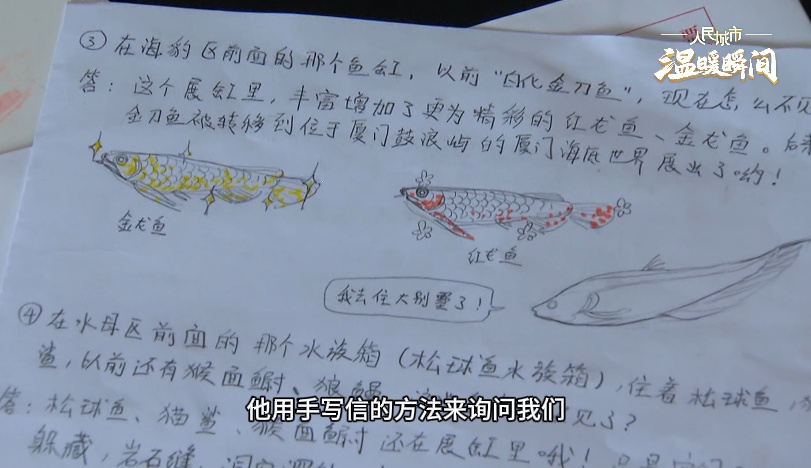 人民城市
温暖瞬间
③ 在海豹区前面的那个鱼缸，以前“白化金刀鱼”，现在怎么不见
答：这个展缸里，丰富增加了更为精彩的红龙鱼、金龙鱼。后来
金刀鱼被转移到位于厦门鼓浪屿的厦门海底世界展出了哟！
金龙鱼
红龙鱼
我去住大别墅了！
④ 在水母区前面的那个水族箱（松球鱼水族箱），住着松球鱼，
鲨，以前还有猴面鳚、狼鳗
见了？
答：松球鱼、猫鲨、猴面鳚还在展缸里哦！
躲藏，岩石缝、洞穴
他用手写信的方法来询问我们